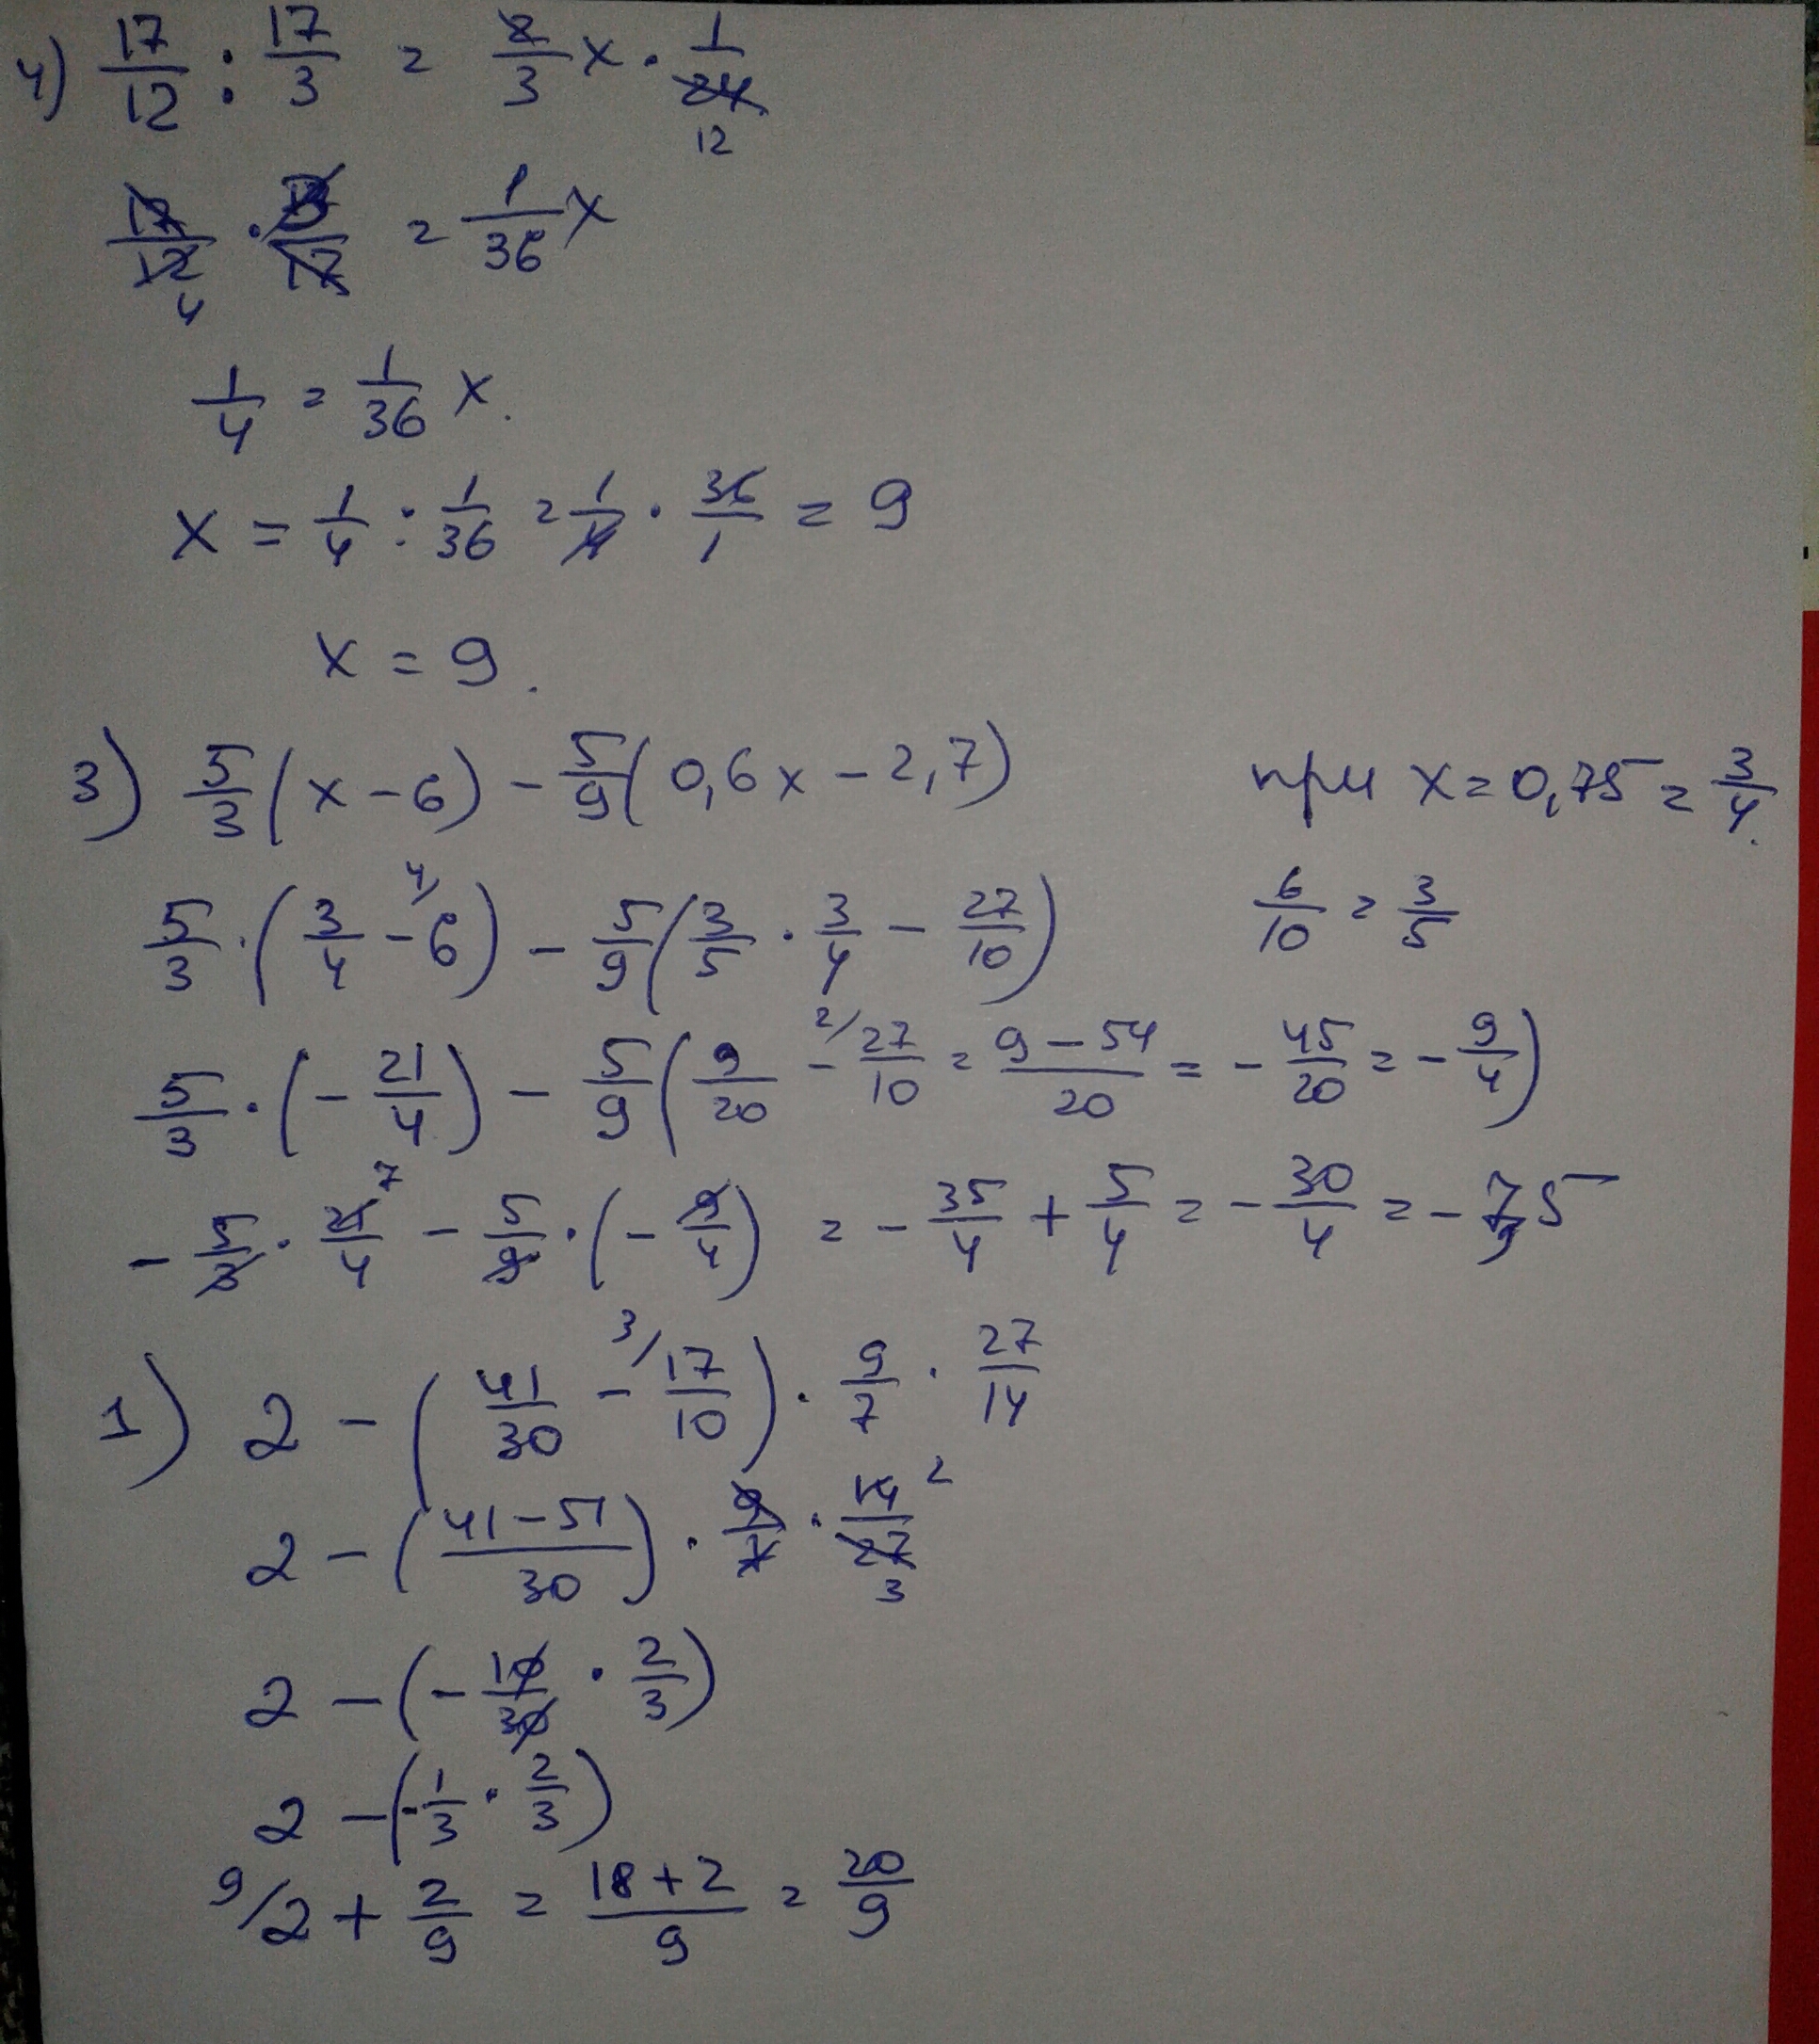 4) 17/12 : 17/3 = 2/3 x · 1/24 12
17/12 4 · 3/17 = 1/36 x
1/4 = 1/36 x.
x = 1/4 : 1/36 = 1/4 · 36/1 = 9
x = 9.
3) 5/3 (x - 6) - 5/9 (0,6x - 2,7) при x = 0,75 = 3/4.
5/3 · (3/4 - 4/ 6) - 5/9 (3/5 · 3/4 - 27/10) 6/10 = 3/5
5/3 · (- 21/4) - 5/9 (9/20 - 2/ 27/10 = 9 - 54/20 = - 45/20 = - 9/4)
- 5/3 · 21/4 7 - 5/9 · (- 9/4) = - 35/4 + 5/4 = - 30/4 = - 7,5
1) 2 - (41/30 - 3/ 17/10) · 9/7 · 27/14
2 - (41 - 51/30) · 9/7 · 14/27 2 3
2 - (- 10/30 · 2/3)
2 - (- 1/3 · 2/3)
9/ 2 + 2/9 = 18 + 2/9 = 20/9